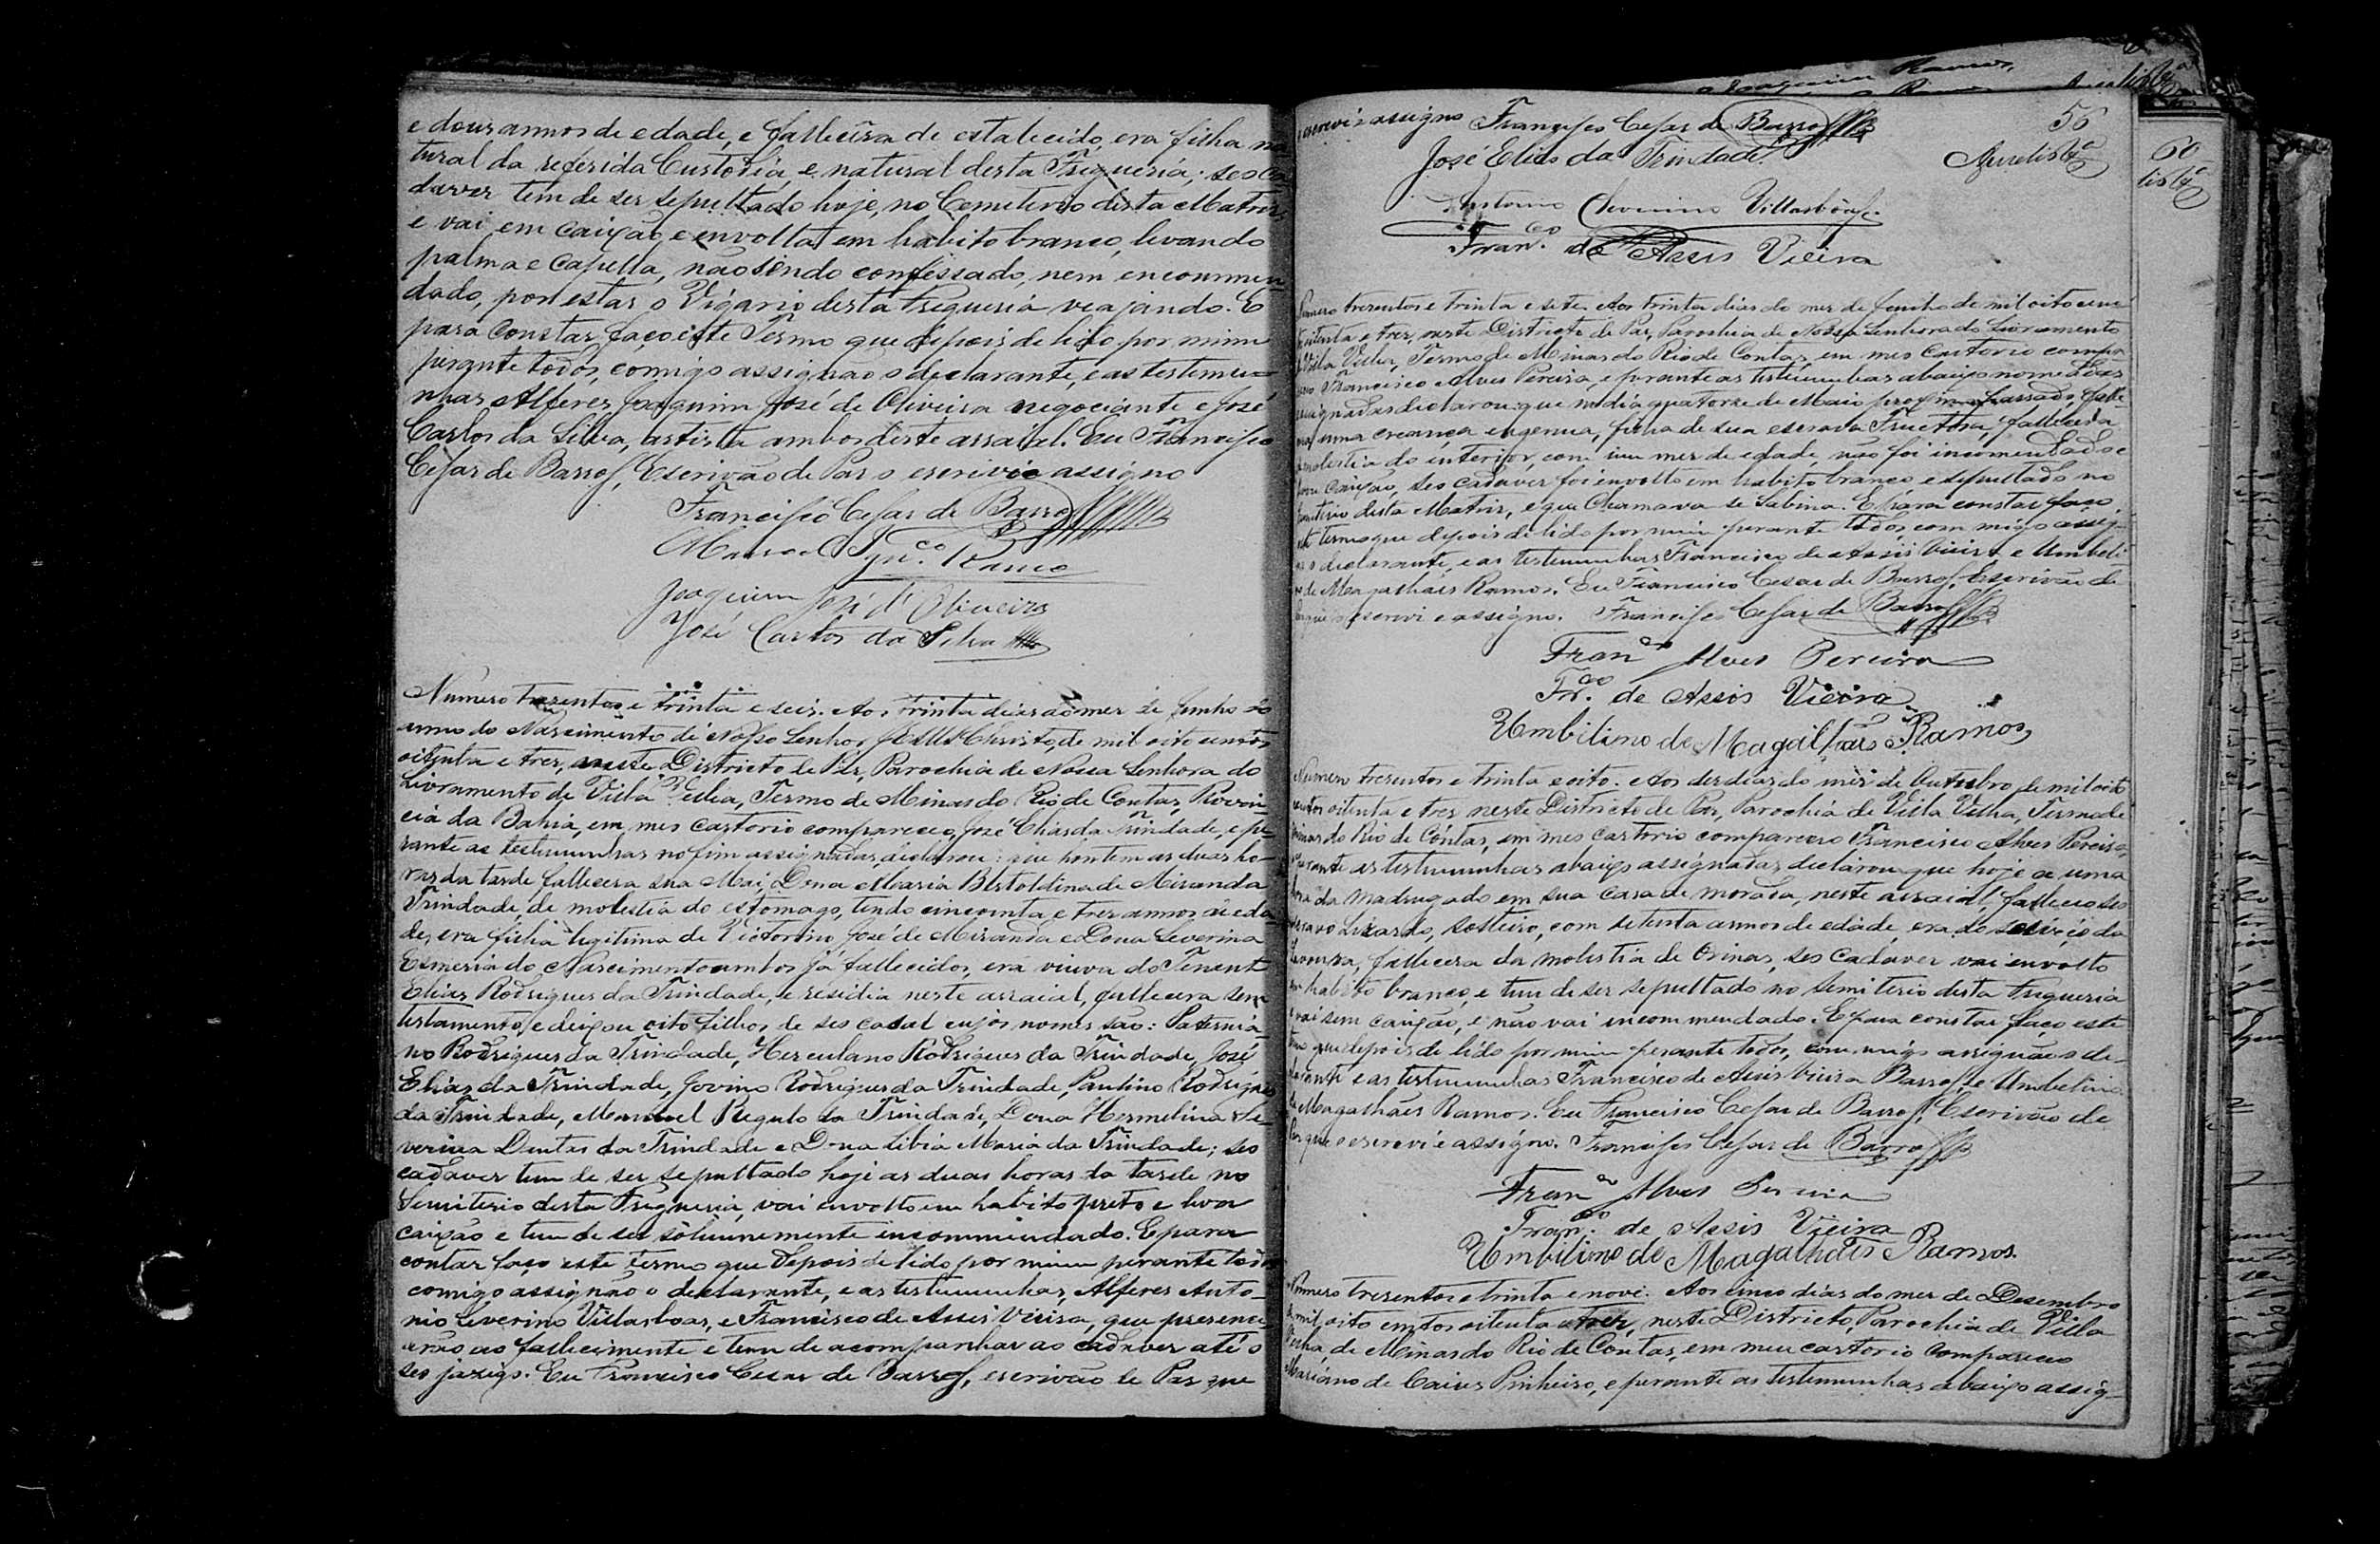 e dous annos de edade, e fallecêra de estalecido, era filha na
tural da referida Custodia, e natural desta Freguesia; seo ca
daver tem de ser sepultado hoje, no Cemeterio desta Matriz,
e vai em caixão e envolta em habito branco, levando
palma e capella, não sendo confessado, nem encommen
dado, por estar o Vigario desta freguesia veajando. E
para constar faço este Termo que depois de lido por mim
perante todos, comigo assignão o declarante, e as testemu
nhas Alferes Joaquim José de Oliveira negociante e José
Carlos da Silva, artista ambos deste arraial. Eu Francisco
Cesar de Barros, Escrivão de Pas o escrivi e assigno
Francisco Cesar de Barros
Manoel Ignco. Ramo
Joaquim José d'Oliveira
José Carlos da Silva
Numero tresentos e trinta e seis. Aos trinta dias do mes de Junho do
anno do Nascimento de Nosso Senhor Jesus Christo, de mil oito centos
oitenta e tres, neste Districto de Pas, Parochia de Nossa Senhora do
Livramento de Villa Velha, Termo de Minas do Rio de Contas, Provin
cia da Bahia, em meo Cartorio compareceo José Elias da Trindade, e pe
rante as testemunhas no fim assignadas, declarou: que hontem as duas ho
ras da tarde fallecera sua Mai, Dona Maria Bertoldina de Miranda
Trindade, de molestia do estomago, tendo cincoenta e tres annos de eda
de, era filha legitima de Victorino José de Miranda e Dona Severina
Esmeria do Nascimento ambos já fallecidos, era viuva do Tenente
Elias Rodrigues da Trindade, e residia neste arraial, fallecera sem
testamento, e deixou oito filhos de seo casal cujos nomes são: Paternia
no Rodrigues da Trindade, Herculano Rodrigues da Trindade, José
Elias da Trindade, Jovino Rodrigues da Trindade, Paulino Rodrigues
da Trindade, Manoel Regulo da Trindade, Dona Hermelina Se
verina Dantas da Trindade e Dona Libia Maria da Trindade; seo
cadaver tem de ser sepultado hoje as duas horas da tarde no
Semiterio desta Freguesia, vai envolto em habito preto e leva
caixão e tem de ser solemnemente encommendado. E para
contar faço este termo que depois de lido por mim perante todos
comigo assignão o declarante, e as testemunhas, Alferes Anto
nio Severino Villasboas, e Francisco de Assis Vieira, que presenci
arão ao fallecimento e tem de acompanhar ao cadaver até o
seo jasigo. Eu Francisco Cesar de Barros, escrivão de Pas que
escrevi e assigno Francisco Cesar de Barros
56
José Elias da Trindade
60
Antonio Severino Villasbôas
Franco. de Assis Vieira
Numero tresentos e trinta e sete. Aos trinta dias do mes de Junho de mil oito cen
oitenta e tres, neste Districto de Pas, Parochia de Nossa Senhora do Livramento
Villa Velha, Termo de Minas do Rio de Contas, em meo Cartorio compa
Francisco Alves Pereira, e perante as testemunhas abaixo nomeadas
declarou: que no dia quatorze de Maio proximo passado, falle
uma creança ingenua, filha de sua escrava Fructosa, fallecera
molestia do interior, com um mes de edade, não foi incomendado e
caixão, seo cadaver foi envolto em habito branco e sepultado no
desta Matriz, e que Chamava se Sabina. E para constar faço
termo que depois de lido por mim perante todos, com migo assig
o declarante, e as testemunhas Francisco de Assis Vieira e Umbeli
de Magalhães Ramos. Eu Francisco Cesar de Barros, Escrivão de
que o escrevi e assigno. Francisco Cesar de Barros
Franco Alves Pereira
Frco. de Assis Vieira
Umbilino de Magalhães Ramos
Numero tresentos e trinta e oito. Aos des dias do mes de Outubro de mil oito
centos oitenta e tres neste Districto de Pas, Parochia de Villa Velha, Termo de
Minas do Rio de Contas, em meo Cartorio compareceo Francisco Alves Pereira,
perante as testemunhas abaixo assignadas declarou que hoje a uma
hora da madrugado em sua casa de morada, neste arraial, falleceo seo
escravo Lisardo, solteiro, com setenta annos de edade, era do serviço da
lavoura, fallecera da molestia de Orinas, seo cadaver vai envolto
em habito branco, e tem de ser sepultado no Semiterio desta freguesia
e vai sem caixão, e não vai incommendado. E para constar faço este
que depois de lido por mim perante todos, commigo assignão o de
clarante e as testemunhas Francisco de Assis Vieira Barros, e Umbelino
de Magalhães Ramos. Eu Francisco Cesar de Barros, Escrivão de
Pas que o escrevi e assigno. Francisco Cesar de Barros
Franco Alves Pereira
Franco. de Assis Vieira
Umbilino de Magalhães Ramos.
Numero tresentos e trinta e nove. Aos cinco dias do mes de Desembro
de mil oito centos oitenta e tres, neste Districto, Parochia de Villa
Velha, de Minas do Rio de Contas, em meu cartorio compareceo
Mariano de Caires Pinheiro, e perante as testemunhas abaixo assig-